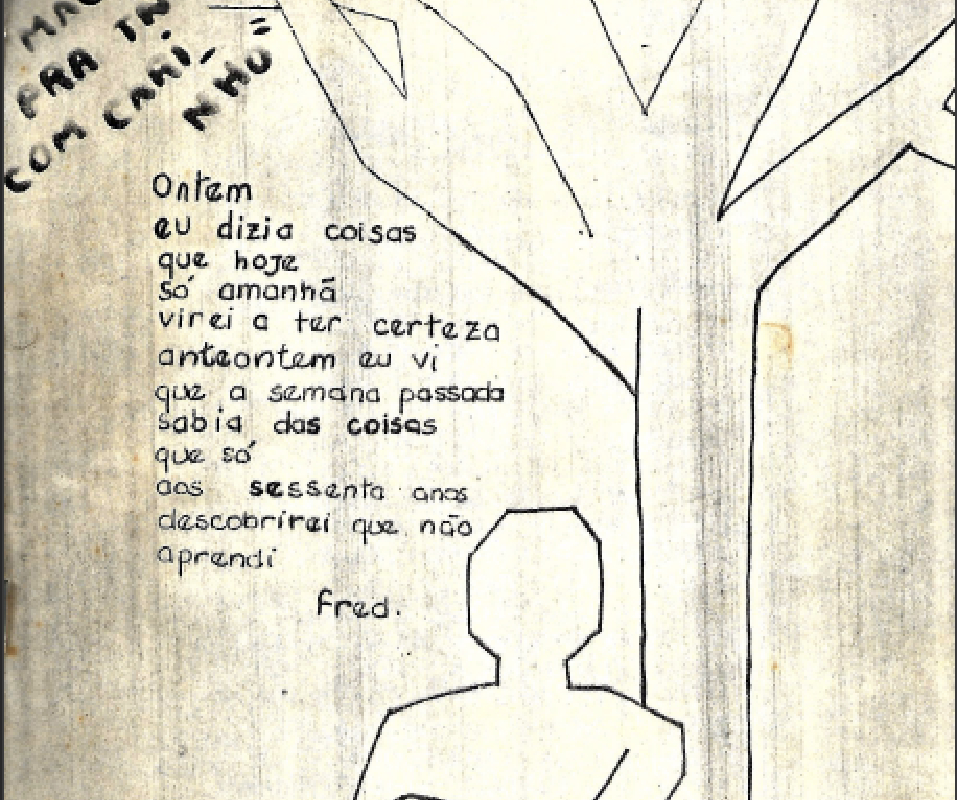 PRA
COM CARI,
NHO"
Ontem
eu dizia coisas
que hoje
só amanhã
virei a ter certeza
anteontem eu vi
que a semana passada
sabia das coisas
que só
aos sessenta anos
descobrirei que não
aprendi
Fred.